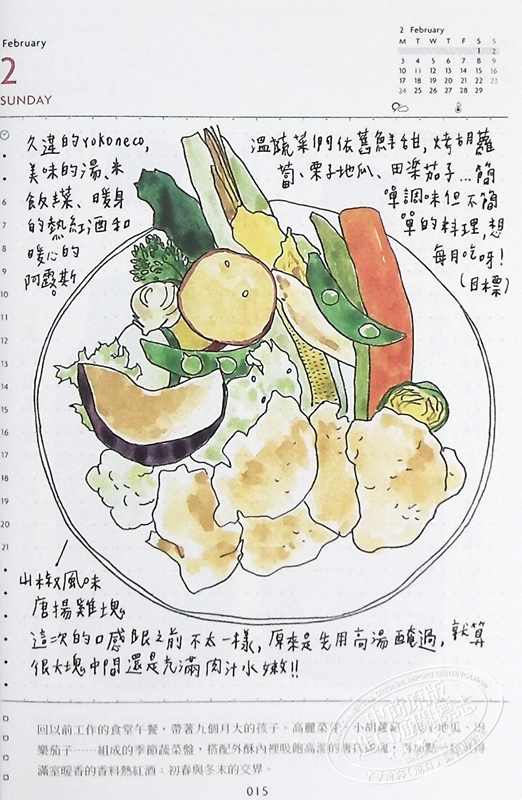 February
2
SUNDAY
2 February
M T W T F S S
1 2
3 4 5 6 7 8 9
10 11 12 13 14 15 16
17 18 19 20 21 22 23
24 25 26 27 28 29
6
7
8
9
10
11
12
13
14
15
16
17
18
19
20
21
久違的yokoneco,
美味的湯、米
飯、菜、暖身
的熱紅酒和
暖心的
阿露斯。
溫蔬菜們依舊鮮甜,烤胡蘿
蔔、栗子地瓜、田樂茄子…簡
單調味但不簡
單的料理,想
每月吃呀!
(目標)
山椒風味
唐揚雞塊
這次的口感跟之前不太一樣,原來是先用高湯醃過,就算
很大塊中間還是充滿肉汁水嫩!!
回以前工作的食堂午餐,帶著九個月大的孩子。高麗菜芽、小胡蘿蔔、栗子地瓜、田
樂茄子……組成的季節蔬菜盤,搭配外酥內裡吸飽高湯的唐揚雞塊,再加點一 得
滿室暖香的香料熱紅酒:初春與冬末的交界。
015